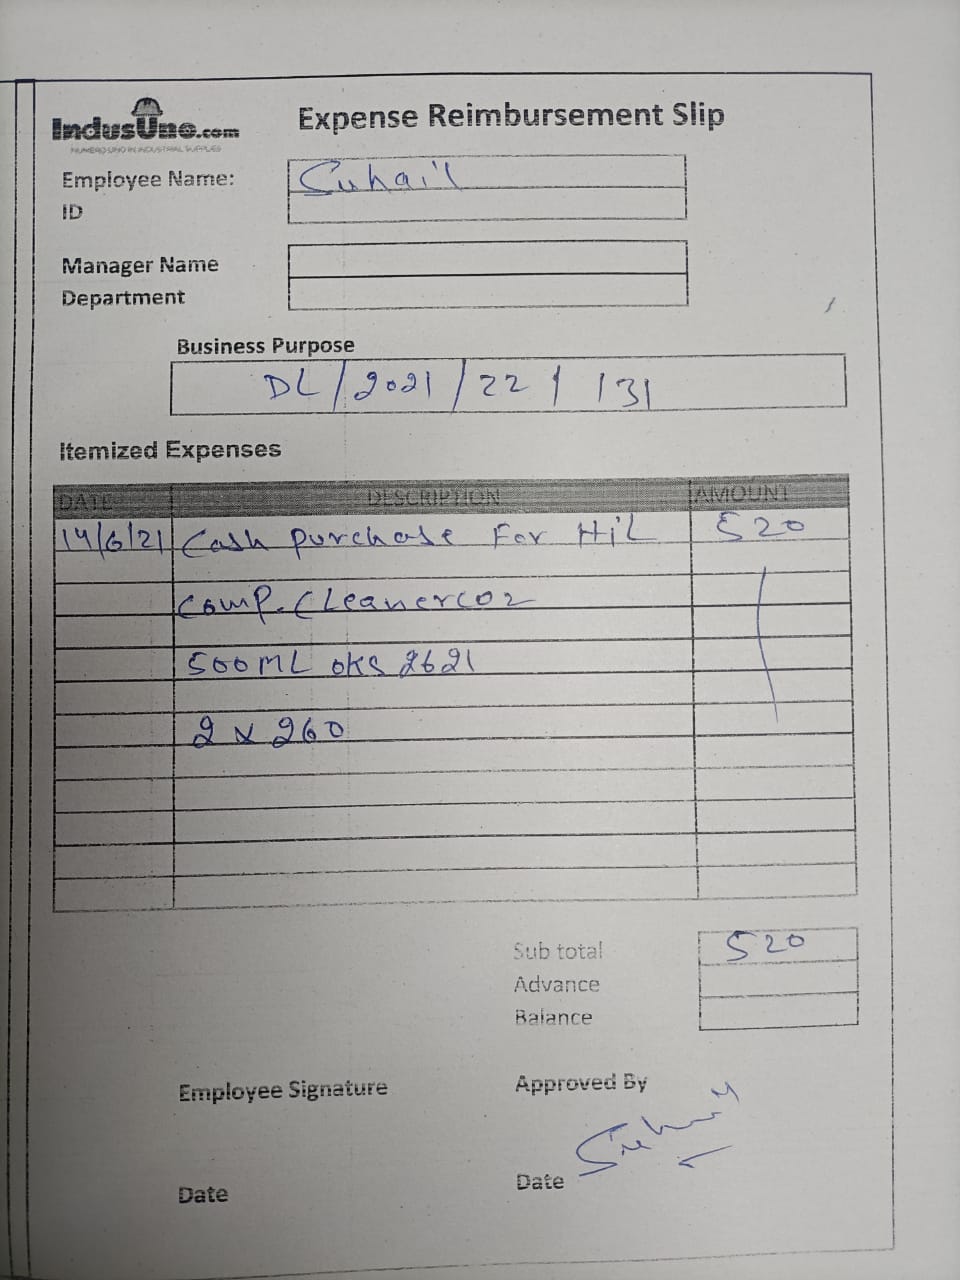 IndusUno.com
NUMERO UNO IN INDUSTRIAL SUPPLIES
Expense Reimbursement Slip
Employee Name: Suhail
ID
Manager Name
Department
Business Purpose
DL/2021/22/131
Itemized Expenses
DATE DESCRIPTION AMOUNT
14/6/21 Cash purchase For HiL 520
Comp. Cleanerco2
500ML OKS 2621
2 x 260
Sub total 520
Advance
Balance
Employee Signature Approved By
Suhail
Date Date